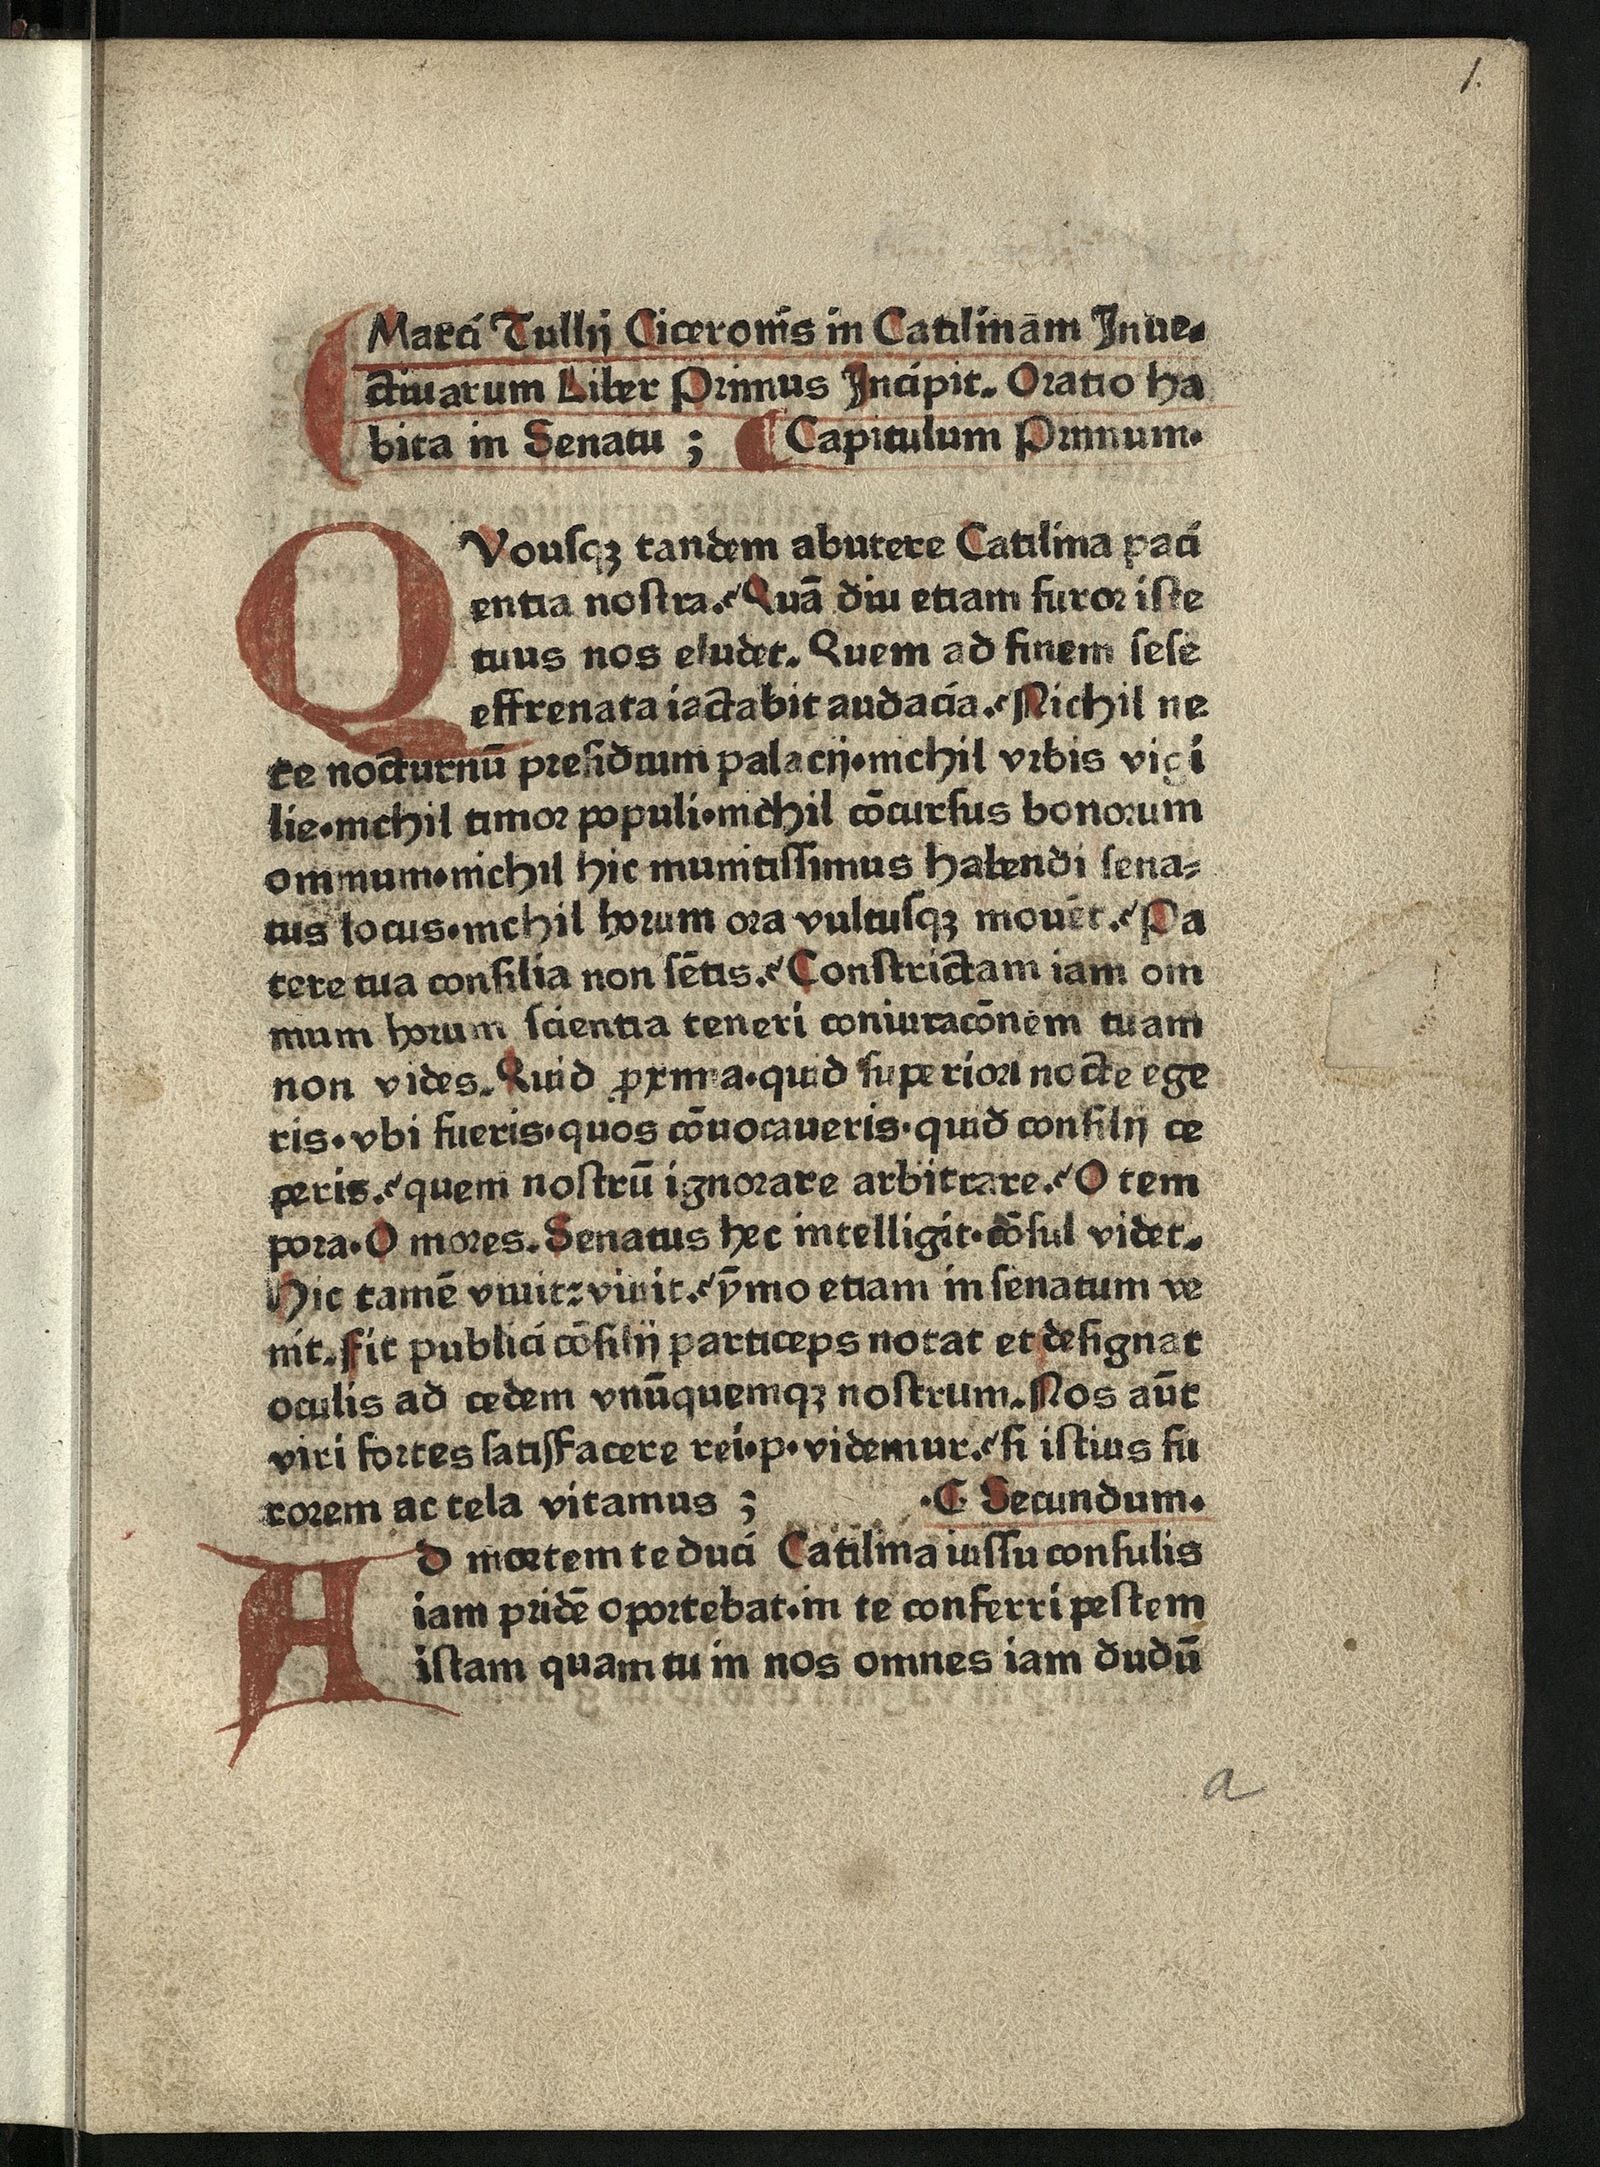 1.
Marci Tullij Ciceronis in Catilinam Inue-
ctiuarum Liber Primus Incipit. Oratio ha
bita in Senatu ; ¶ Capitulum Primum.
QVousqꝫ tandem abutere Catilina paci
entia nostra.? Quā diu etiam furor iste
tuus nos eludet. Quem ad finem sese
effrenata iactabit audacia.? Nichil ne
te nocturnū presidium palacij·nichil vrbis vigi
lie·nichil timor populi·nichil cōcursus bonorum
omnium·nichil hic munitissimus habendi sena⸗
tus locus·nichil horum ora vultusqꝫ mouēt.? Pa
tere tua consilia non sētis.? Constrictam iam om
nium horum scientia teneri coniuracōnem tuam
non vides. Quid ꝓxima·quid superiori nocte ege
ris·vbi fueris·quos cōuocaueris·quid consilij ce
peris.? quem nostrū ignorare arbitrare.? O tem
pora·O mores. Senatus hec intelligit·cōsul videt.
Hic tamē viuit: viuit.? ȳmo etiam in senatum ve
nit. Fit publici cōsilij particeps notat et designat
oculis ad cedem vnūquemqꝫ nostrum. Nos aūt
viri fortes satisfacere rei·p·videmur.? si istius fu
rorem ac tela vitamus ; ·C· Secundum.
AD mortem te duci Catilina iussu consulis
iam pridē oportebat·in te conferri pestem
istam quam tu in nos omnes iam dudū
a